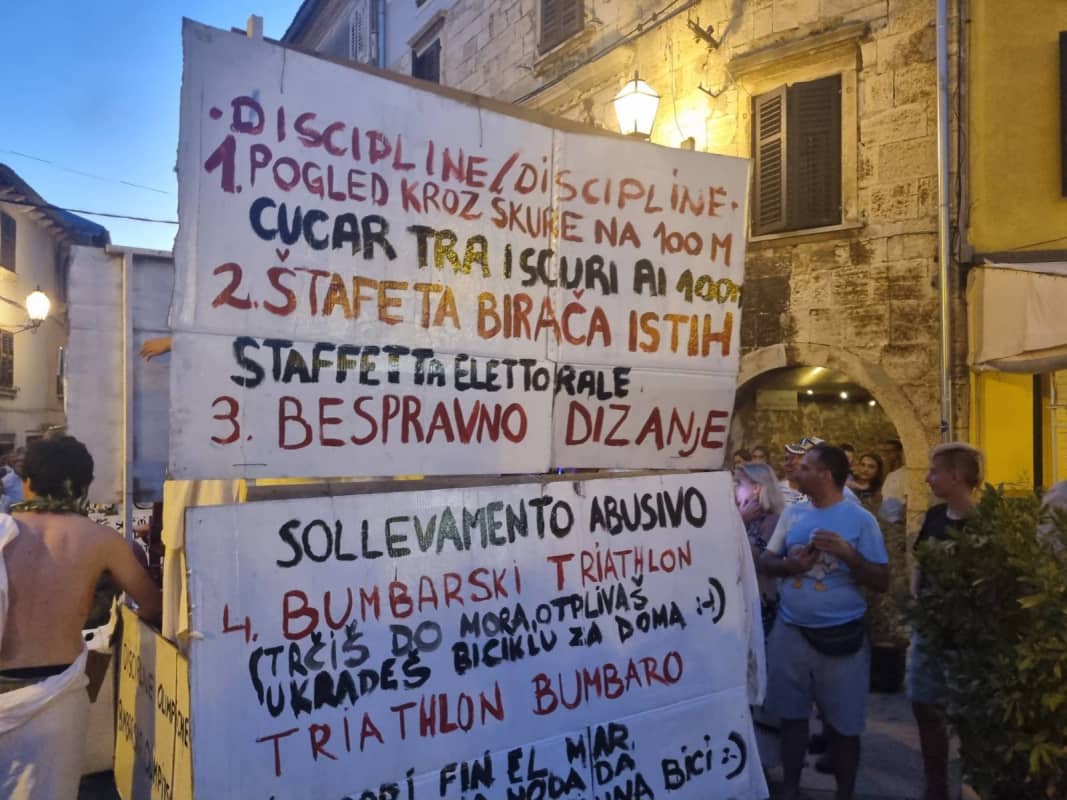 • DISCIPLINE/DISCIPLINE •
1. POGLED KROZ ŠKURE NA 100 M
CUCAR TRA I SCURI AI 100m
2. ŠTAFETA BIRAČA ISTIH
STAFFETTA ELETTORALE
3. BESPRAVNO DIZANJE
SOLLEVAMENTO ABUSIVO
4. BUMBARSKI TRIATHLON
(TRČIŠ DO MORA, OTPLIVAŠ
UKRADEŠ BICIKLU ZA DOMA :-)
TRIATHLON BUMBARO
FIN EL MAR,
NODA DA
UNA BICI :-)
OLIMPI